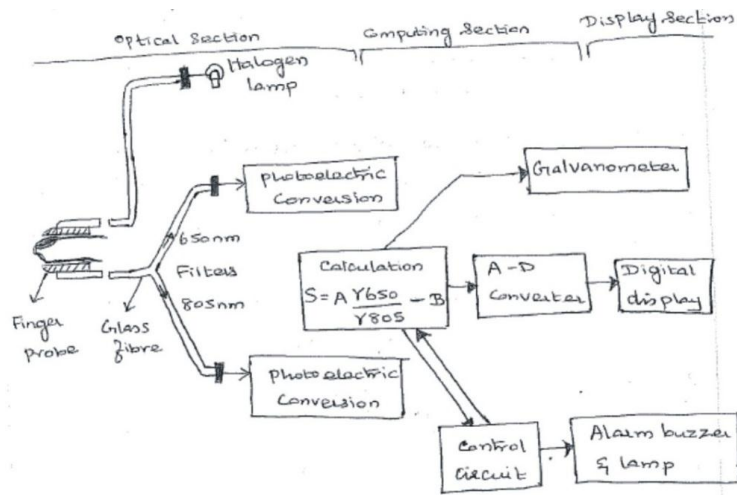 Optical Section
Computing Section
Display Section
Halogen
lamp
photoelectric
Conversion
Galvanometer
650nm
Filters
805nm
Calculation
S = A γ650/γ805 - B
A-D
Converter
Digital
display
Finger
probe
Glass
fibre
photoelectric
Conversion
Control
Circuit
Alarm buzzer
& lamp